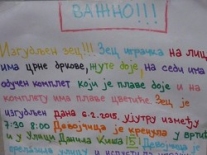 ВАЖНО!!!
Изгубљен зец!!! Зец нерашка НА ЛИЦУ
ИМА ЦРНЕ бркове, жуте боје, НА СЕБИ ИМА
обучен комплет који је плаве боје и на
комплету има плаве цветиће. Зец је
изгубљен дана 6.2.2015. ујутру између
7:30 8:00 Девојчица је кренула у вртић
и у Улици Данила Киша 5